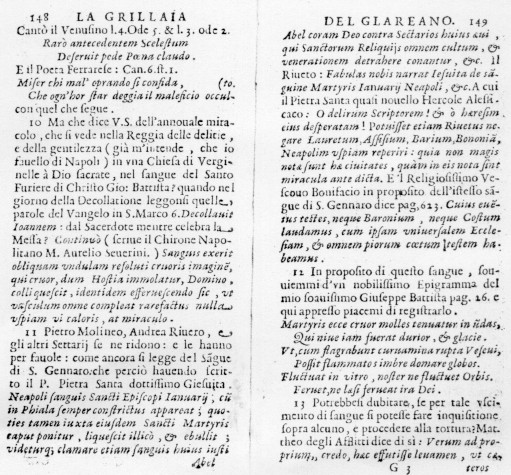 148 LA GRILLAIA
Cantò il Venusino l.4. Ode 5. & l. 3. ode 2.
Rarò antecedentem Scelestum
Deseruit pede Pœna claudo.
E il Poeta Ferrarese: Can. 6. st. 1.
Miser chi mal' oprando si confida, (to.
Che ogn'hor star deggia il maleficio occul-
con quel che segue.
10 Ma che dice V.S. dell'annouale mira-
colo, che si vede nella Reggia delle delitie,
e della gentilezza (già m'intende, che io
fauello di Napoli) in vna Chiesa di Vergi-
nelle à Dio sacrate, nel sangue del Santo
Furiere di Christo Gio: Battista? quando nel
giorno della Decollatione leggonsi quelle
parole del Vangelo in S. Marco 6. Decollauit
Ioannem: dal Sacerdote mentre celebra la
Messa? Continuò (scriue il Chirone Napo-
litano M. Aurelio Seuerini.) Sanguis exerit
obliquam vndulam resoluti cruoris imaginē,
qui cruor, dum Hostia immolatur, Domino,
colliquescit, identidem efferuescendo sic, vt
vasculum omne compleat rarefactus nulla
vspiam vi caloris, at miraculo.
11 Pietro Molineo, Andrea Riuero, e
gli altri Settarij se ne ridono: e le hanno
per fauole: come ancora si legge del Sāgue
di S. Gennaro: che perciò hauendo scrit-
to il P. Pietra Santa dottissimo Giesuita.
Neapoli sanguis Sancti Episcopi Ianuarij, cū
in Phiala semper constrictus appareat; quo-
ties tamen iuxta eiusdem Sancti Martyris
caput ponitur, liquescit illicò, & ebullit;
videturq; clamare etiam sanguis huius iusti
Abel
DEL GLAREANO. 149
Abel coram Deo contra Sectarios huius æui,
qui Sanctorum Reliquijs omnem cultum, &
venerationem detrahere conantur, &c. Il
Riuero: Fabulas nobis narrat Iesuita de sā-
guine Martyris Ianuarij Neapoli, &c. A cui
il Pietra Santa quasi nouello Hercole Alessi-
caco: O delirum Scriptorem! & ò hæresim
eius desperatam! Potuisset etiam Riuetus ne-
gare Lauretum, Assisium, Barium, Bononiā,
Neapolim vspiam reperiri: quia non magis
nota sunt hæ ciuitates, quàm in eis nota sint
miracula ante dicta. E il Religiosissimo Ve-
scouo Bonifacio in proposito dell'istesso sā-
gue di S. Gennaro dice pag, 623. Cuius euē-
tus testes, neque Baronium, neque Costum
laudamus, cum ipsam vniuersalem Eccle-
siam, & omnem piorum cœtum testem ha-
beamus.
12 In proposito di questo sangue, sou-
uiemmi d'vn nobilissimo Epigramma del
mio soauisimo Giuseppe Battista pag. 26. e
qui appresso piacemi di registrarlo.
Martyris ecce cruor molles tenuatur in vndas,
Qui niue iam fuerat durior, & glacie.
Vt, cum flagrabunt curuamina rupta Veseui,
Possit flammatos imbre domare globos.
Fluctuat in vitro, noster ne fluctuet Orbis.
Feruet, ne lasi ferueat ira Dei.
13 Potrebbesi dubitare, se per tale vsci-
mento di sangue si potesse fare inquisitione
sopra alcuno, e procedere alla tortura? Mat-
theo degli Afflitti dice di sì: Verum ad pro-
prium, credo, hæc effutisse videtur, vt ca-
G 3 teros